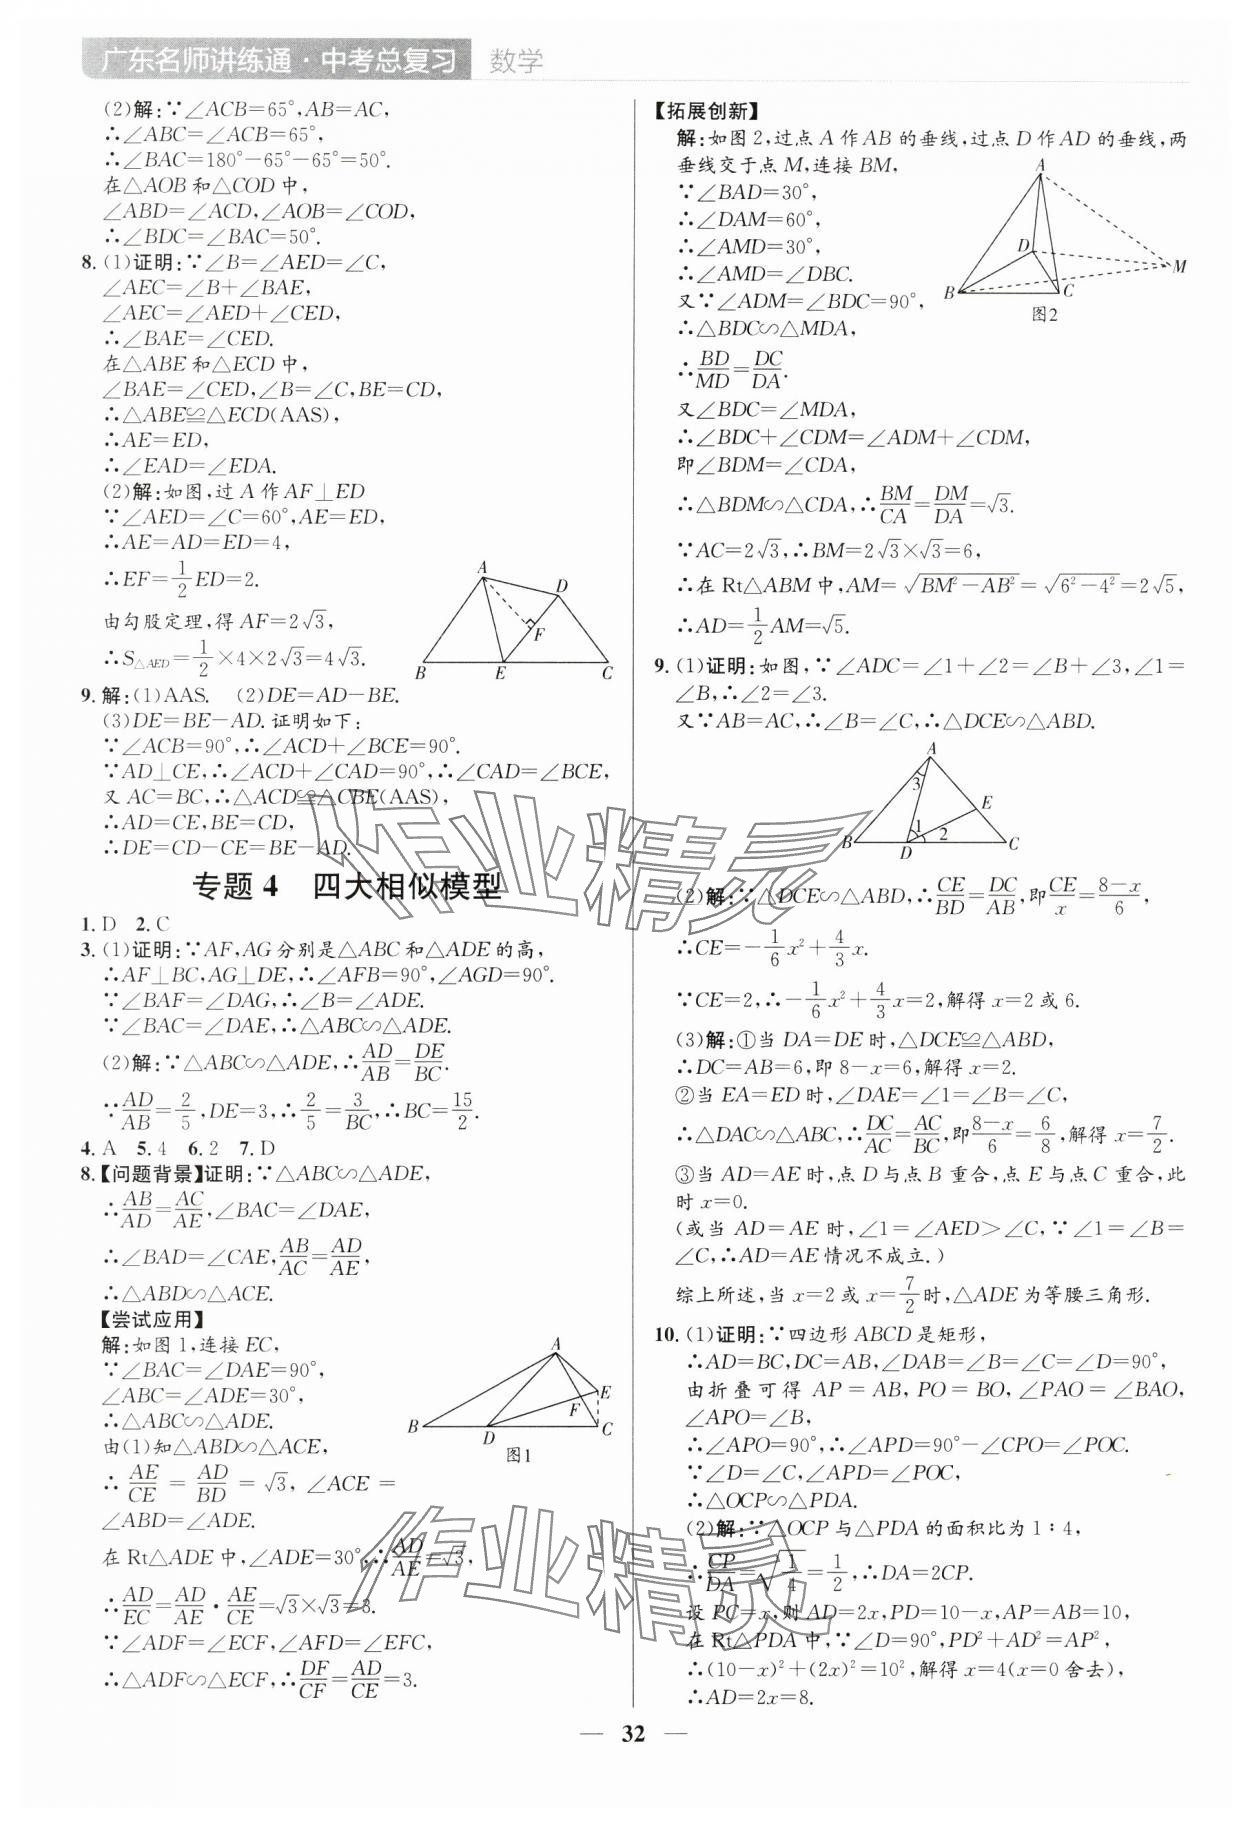 广东名师讲练通·中考总复习 数学
(2)解:∵∠ACB=65°,AB=AC,
∴∠ABC=∠ACB=65°.
∴∠BAC=180°−65°−65°=50°.
在△AOB和△COD中,
∠ABD=∠ACD,∠AOB=∠COD,
∴∠BDC=∠BAC=50°.
8.(1)证明:∵∠B=∠AED=∠C,
∠AEC=∠B+∠BAE,
∠AEC=∠AED+∠CED,
∴∠BAE=∠CED.
在△ABE和△ECD中,
∠BAE=∠CED,∠B=∠C,BE=CD,
∴△ABE≌△ECD(AAS),
∴AE=ED,
∴∠EAD=∠EDA.
(2)解:如图,过A作AF⊥ED
∵∠AED=∠C=60°,AE=ED,
∴AE=AD=ED=4,
∴EF=1/2 ED=2.
由勾股定理,得AF=2√3,
∴S△AED=1/2×4×2√3=4√3.
A D F B E C
9.解:(1)AAS. (2)DE=AD−BE.
(3)DE=BE−AD.证明如下:
∵∠ACB=90°,∴∠ACD+∠BCE=90°.
∵AD⊥CE,∴∠ACD+∠CAD=90°,∴∠CAD=∠BCE,
又AC=BC,∴△ACD≌△CBE(AAS),
∴AD=CE,BE=CD,
∴DE=CD−CE=BE−AD.
专题4 四大相似模型
1.D 2.C
3.(1)证明:∵AF,AG分别是△ABC和△ADE的高,
∴AF⊥BC,AG⊥DE,∴∠AFB=90°,∠AGD=90°.
∵∠BAF=∠DAG,∴∠B=∠ADE.
∵∠BAC=∠DAE,∴△ABC∽△ADE.
(2)解:∵△ABC∽△ADE,∴AD/AB=DE/BC.
∵AD/AB=2/5,DE=3,∴2/5=3/BC,∴BC=15/2.
4.A 5.4 6.2 7.D
8.【问题背景】证明:∵△ABC∽△ADE,
∴AB/AD=AC/AE,∠BAC=∠DAE,
∴∠BAD=∠CAE,AB/AC=AD/AE,
∴△ABD∽△ACE.
【尝试应用】
解:如图1,连接EC,
∵∠BAC=∠DAE=90°,
∠ABC=∠ADE=30°,
∴△ABC∽△ADE.
由(1)知△ABD∽△ACE,
∴AE/CE=AD/BD=√3,∠ACE=
∠ABD=∠ADE.
在Rt△ADE中,∠ADE=30°,∴AD/AE=√3,
∴AD/EC=AD/AE·AE/CE=√3×√3=3.
∵∠ADF=∠ECF,∠AFD=∠EFC,
∴△ADF∽△ECF,∴DF/CF=AD/CE=3.
A E F B D C
图1
【拓展创新】
解:如图2,过点A作AB的垂线,过点D作AD的垂线,两
垂线交于点M,连接BM,
∵∠BAD=30°,
∴∠DAM=60°,
∴∠AMD=30°,
∴∠AMD=∠DBC.
又∵∠ADM=∠BDC=90°,
∴△BDC∽△MDA,
∴BD/MD=DC/DA.
A D M B C
图2
又∠BDC=∠MDA,
∴∠BDC+∠CDM=∠ADM+∠CDM,
即∠BDM=∠CDA,
∴△BDM∽△CDA,∴BM/CA=DM/DA=√3.
∵AC=2√3,∴BM=2√3×√3=6,
∴在Rt△ABM中,AM=√(BM²−AB²)=√(6²−4²)=2√5,
∴AD=1/2 AM=√5.
9.(1)证明:如图,∵∠ADC=∠1+∠2=∠B+∠3,∠1=
∠B,∴∠2=∠3.
又∵AB=AC,∴∠B=∠C,∴△DCE∽△ABD.
A 3 E 1 2 B D C
(2)解:∵△DCE∽△ABD,∴CE/BD=DC/AB,即CE/x=(8−x)/6,
∴CE=−1/6 x²+4/3 x.
∵CE=2,∴−1/6 x²+4/3 x=2,解得x=2或6.
(3)解:①当DA=DE时,△DCE≌△ABD,
∴DC=AB=6,即8−x=6,解得x=2.
②当EA=ED时,∠DAE=∠1=∠B=∠C,
∴△DAC∽△ABC,∴DC/AC=AC/BC,即(8−x)/6=6/8,解得x=7/2.
③当AD=AE时,点D与点B重合,点E与点C重合,此
时x=0.
(或当AD=AE时,∠1=∠AED>∠C,∵∠1=∠B=
∠C,∴AD=AE情况不成立.)
综上所述,当x=2或x=7/2时,△ADE为等腰三角形.
10.(1)证明:∵四边形ABCD是矩形,
∴AD=BC,DC=AB,∠DAB=∠B=∠C=∠D=90°,
由折叠可得AP=AB,PO=BO,∠PAO=∠BAO,
∠APO=∠B,
∴∠APO=90°,∴∠APD=90°−∠CPO=∠POC.
∵∠D=∠C,∠APD=∠POC,
∴△OCP∽△PDA.
(2)解:∵△OCP与△PDA的面积比为1∶4,
∴CP/DA=√(1/4)=1/2,∴DA=2CP.
设PC=x,则AD=2x,PD=10−x,AP=AB=10,
在Rt△PDA中,∵∠D=90°,PD²+AD²=AP²,
∴(10−x)²+(2x)²=10²,解得x=4(x=0舍去),
∴AD=2x=8.
— 32 —
作业精灵
作业精灵